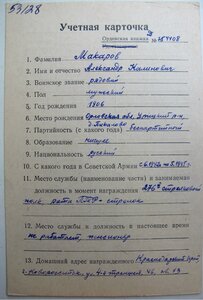 53/28
Учетная карточка
Орденская книжка
№ 754408
1. Фамилия Макаров
2. Имя и отчество Александр Калинович
3. Воинское звание рядовой
4. Пол мужской
5. Год рождения 1906
6. Место рождения Орловская обл. Урицкий р-н
7. Партийность (с какого года) беспартийный
8. Образование низшее
9. Национальность русский
10. С какого года в Советской Армии с 6.1942г. по 8.1945г.
11. Место службы (наименование части) и занимаемая
должность в момент награждения 276 стрелковый
полк рота ПТР - стрелок
12. Место службы и должность в настоящее
время не работает, пенсионер
13. Домашний адрес награжденного Краснодарский край
г. Новороссийск, ул.